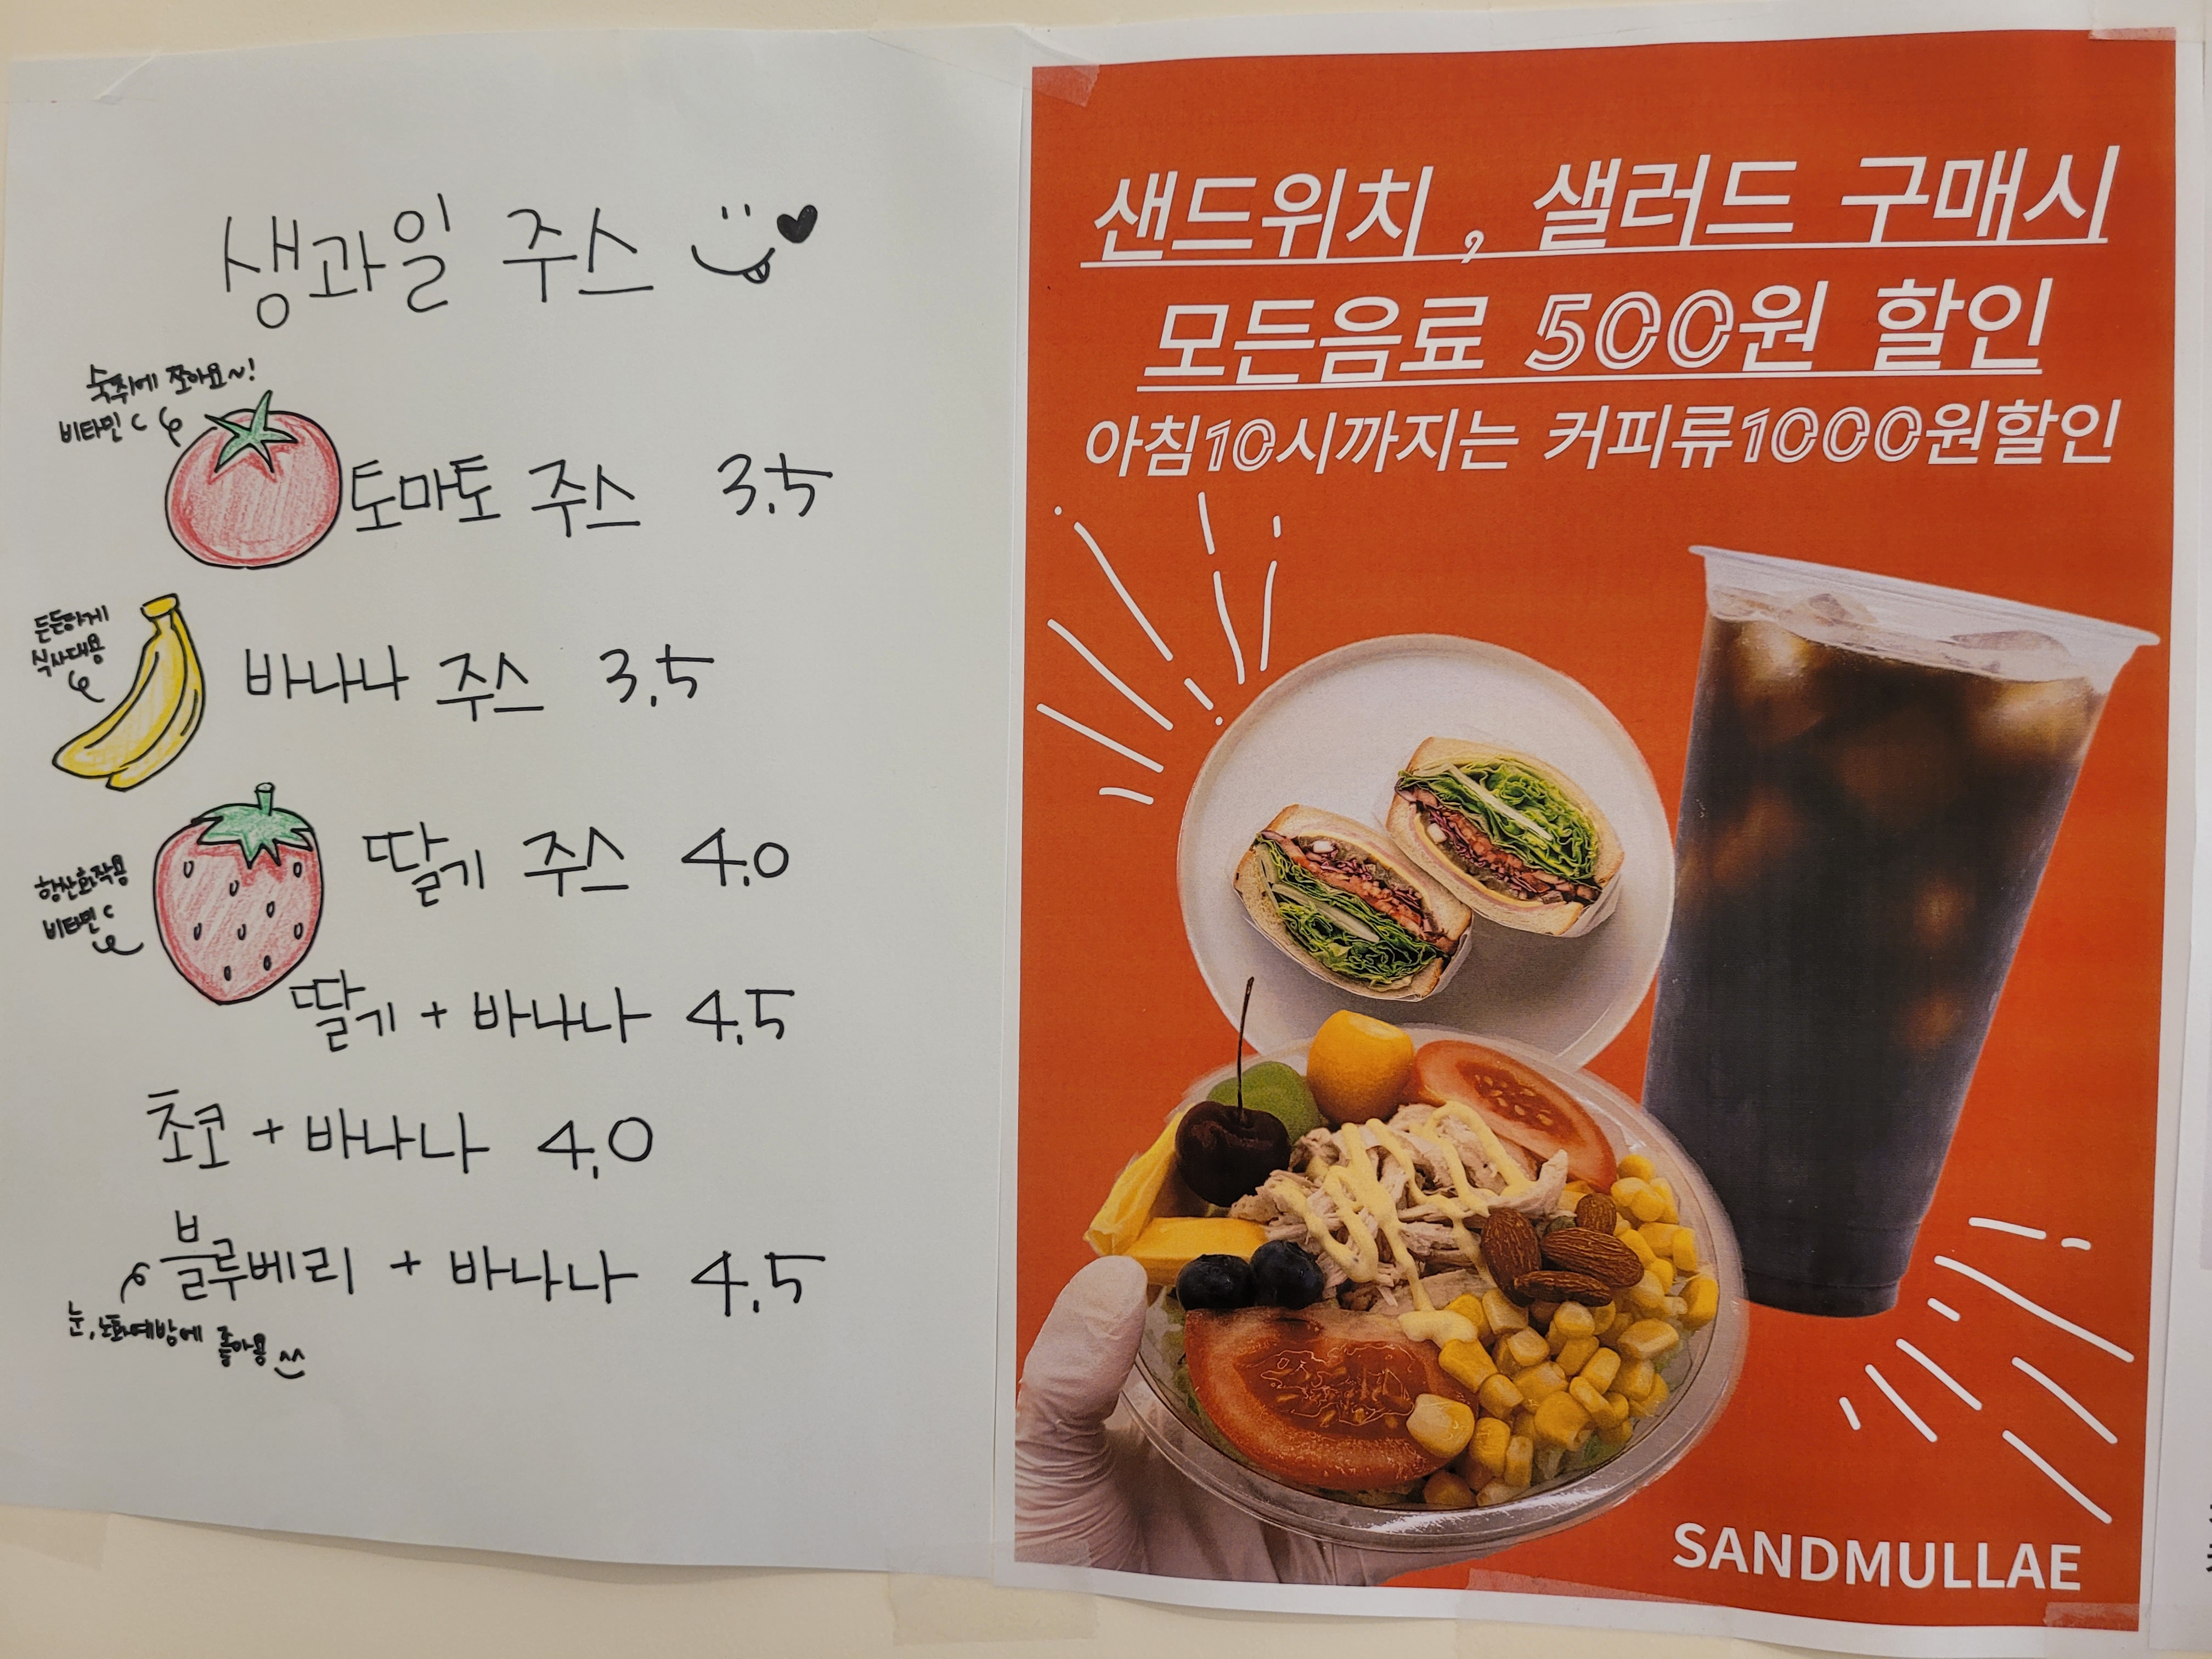 생과일 주스
숙취에 쪼아요~!
비타민 C
토마토 주스 3.5
든든하게
식사대용
바나나 주스 3.5
딸기 주스 4.0
항산화작용
비타민 C
딸기 + 바나나 4.5
초코 + 바나나 4.0
블루베리 + 바나나 4.5
눈, 노화예방에 좋아용
샌드위치 , 샐러드 구매시
모든음료 500원 할인
아침10시까지는 커피류1000원할인
SANDMULLAE